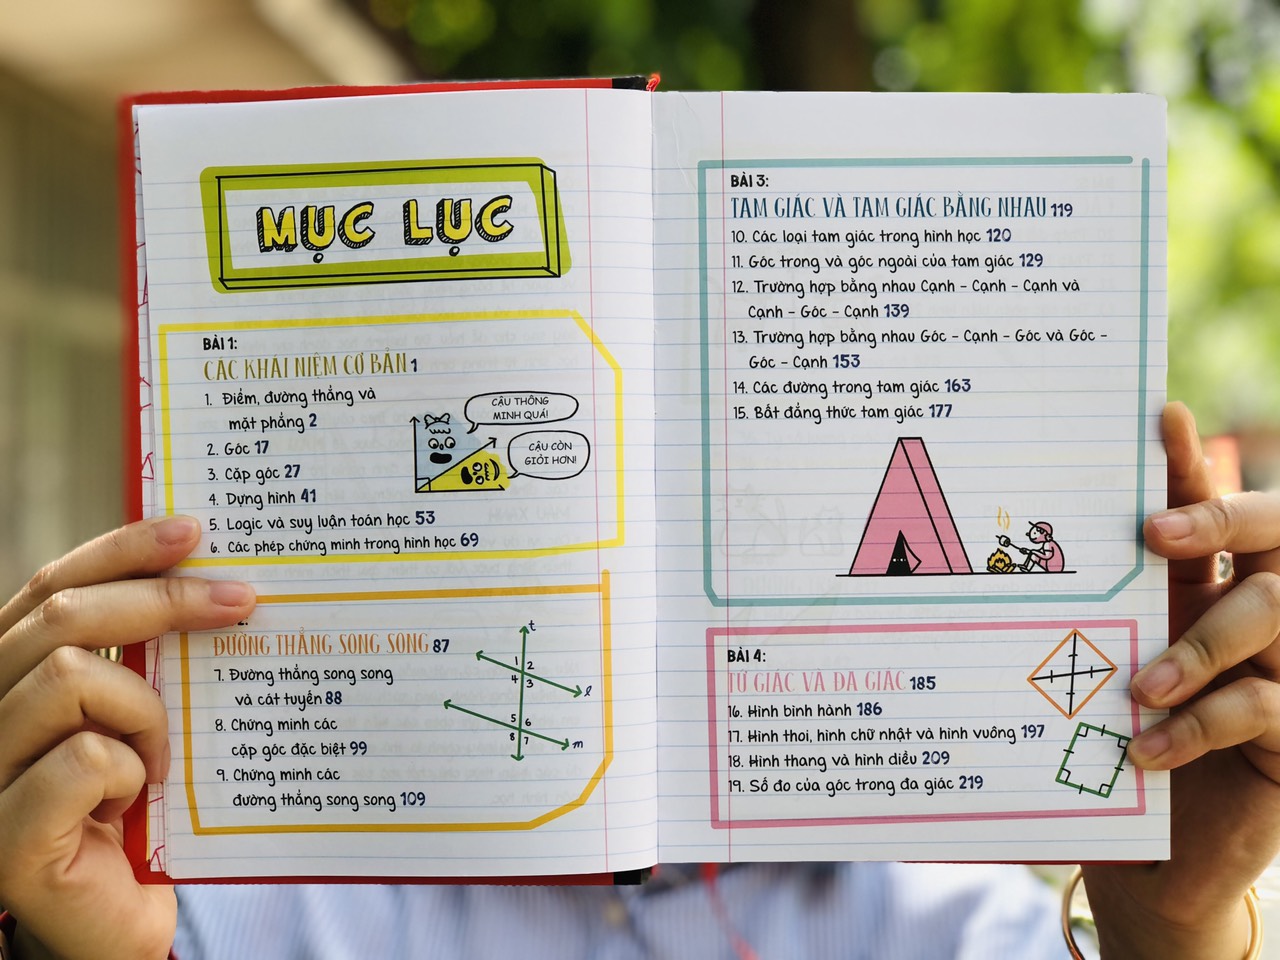 MỤC LỤC
BÀI 1:
CÁC KHÁI NIỆM CƠ BẢN 1
1. Điểm, đường thẳng và
mặt phẳng 2
2. Góc 17
3. Cặp góc 27
4. Dựng hình 41
5. Logic và suy luận toán học 53
6. Các phép chứng minh trong hình học 69
CẬU THÔNG
MINH QUÁ!
CẬU CÒN
GIỎI HƠN!
ĐƯỜNG THẲNG SONG SONG 87
7. Đường thẳng song song
và cát tuyến 88
8. Chứng minh các
cặp góc đặc biệt 99
9. Chứng minh các
đường thẳng song song 109
t
1 2
4 3
l
5 6
8 7
m
BÀI 3:
TAM GIÁC VÀ TAM GIÁC BẰNG NHAU 119
10. Các loại tam giác trong hình học 120
11. Góc trong và góc ngoài của tam giác 129
12. Trường hợp bằng nhau Cạnh - Cạnh - Cạnh và
Cạnh - Góc - Cạnh 139
13. Trường hợp bằng nhau Góc - Cạnh - Góc và Góc -
Góc - Cạnh 153
14. Các đường trong tam giác 163
15. Bất đẳng thức tam giác 177
BÀI 4:
TỨ GIÁC VÀ ĐA GIÁC 185
16. Hình bình hành 186
17. Hình thoi, hình chữ nhật và hình vuông 197
18. Hình thang và hình diều 209
19. Số đo của góc trong đa giác 219